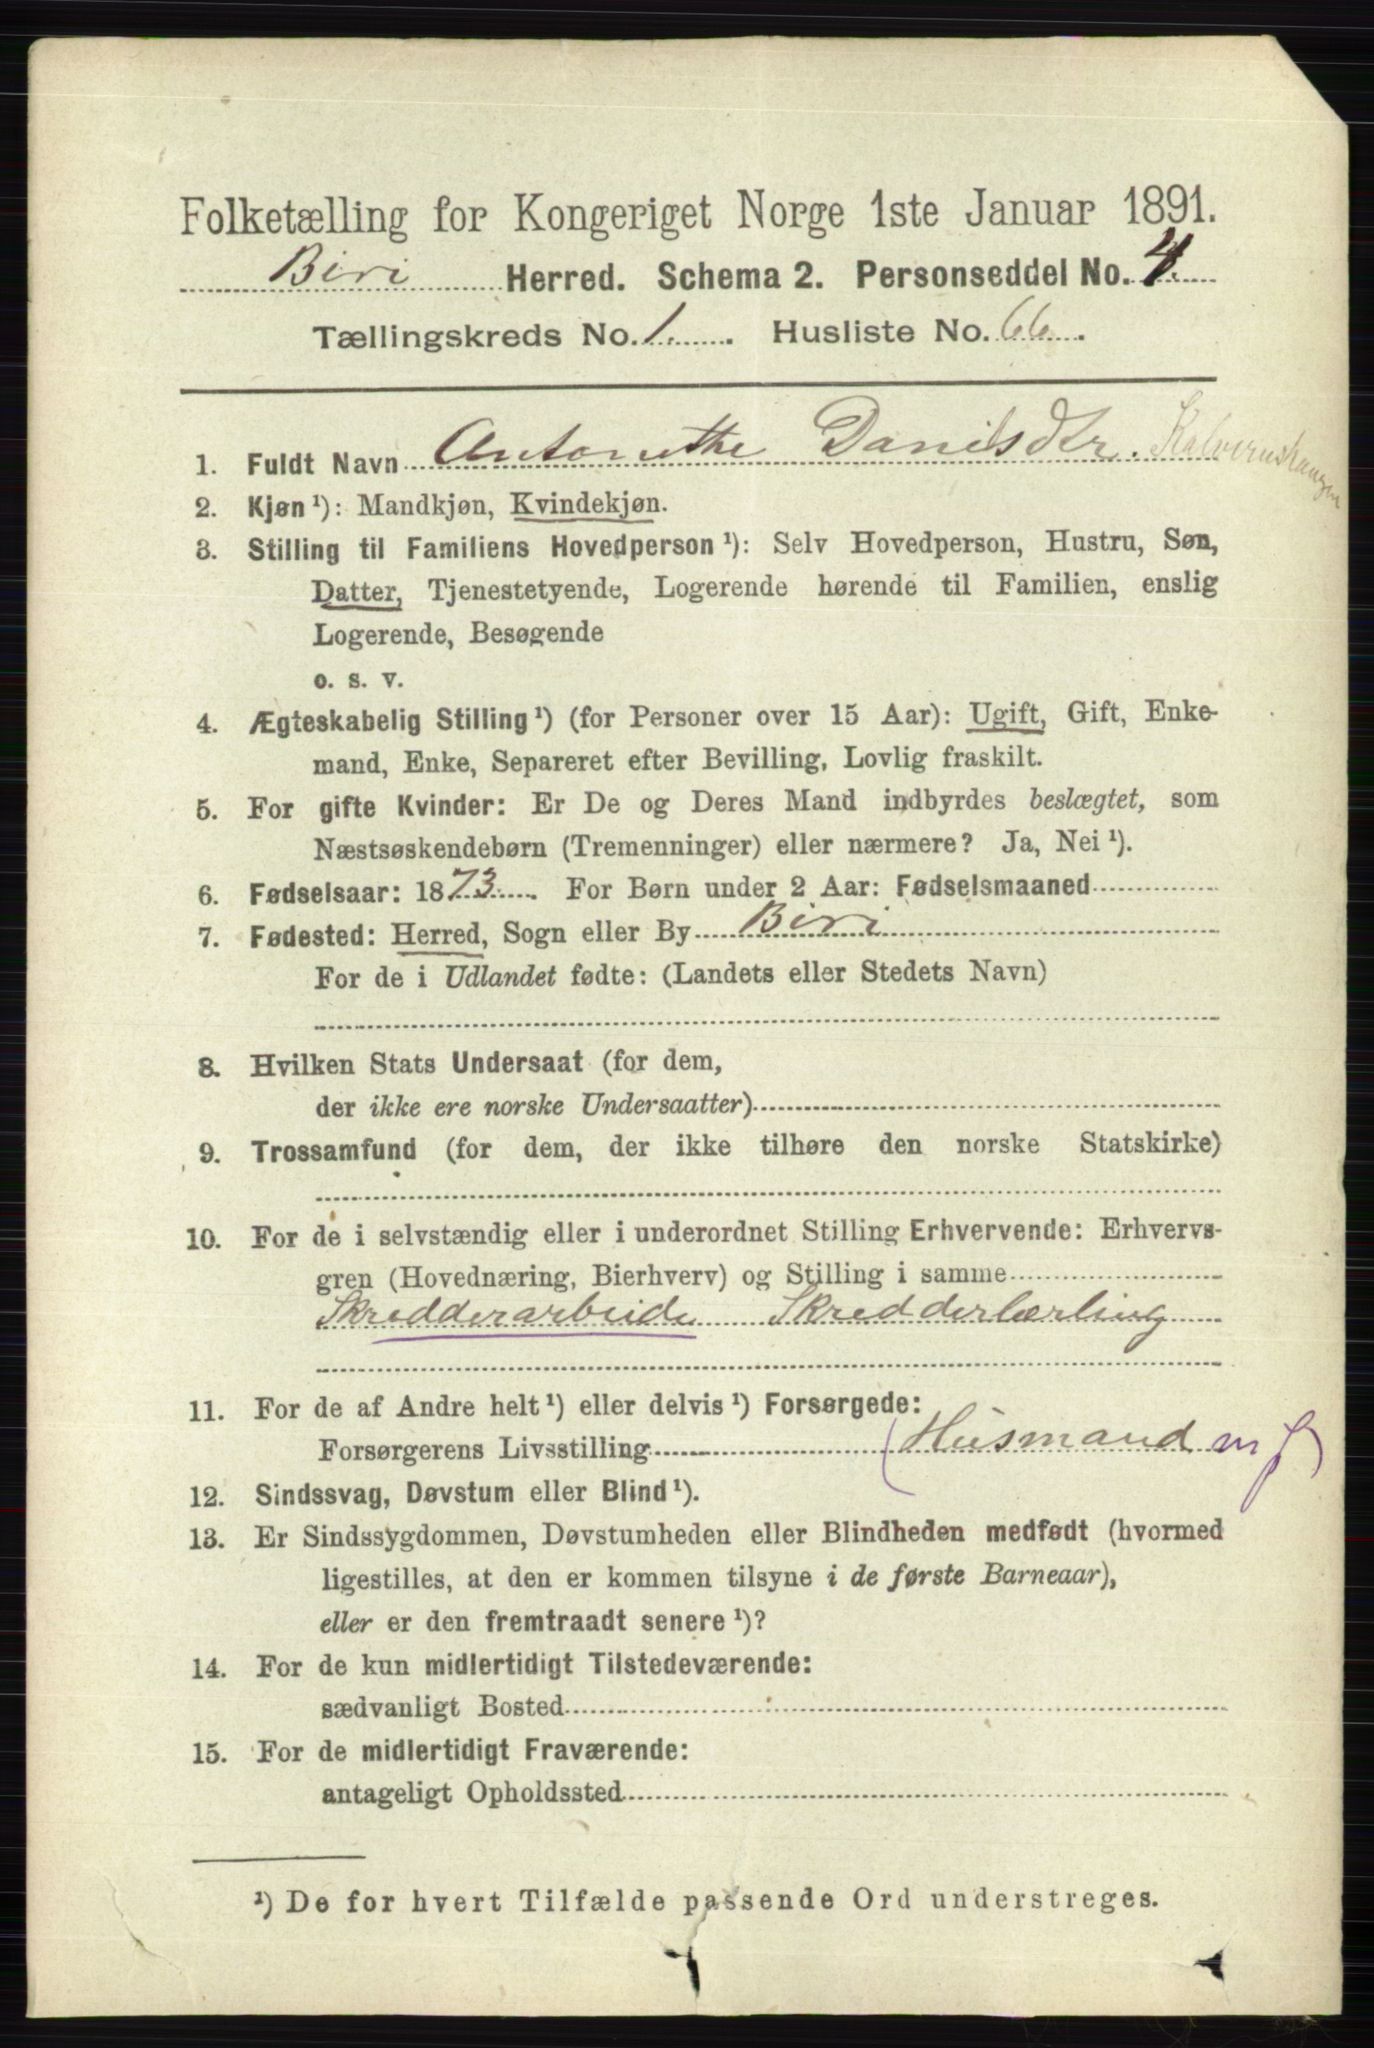 Folketælling for Kongeriget Norge 1ste Januar 1891.
Biri Herred. Schema 2. Personseddel No. 4.
Tællingskreds No. 1. Husliste No. 66.
1. Fuldt Navn Antonethe Danilsdtr.
2. Kjøn ¹): Mandkjøn, Kvindekjøn.
3. Stilling til Familiens Hovedperson ¹): Selv Hovedperson, Hustru, Søn,
Datter, Tjenestetyende, Logerende hørende til Familien, enslig
Logerende, Besøgende
o. s. v.
4. Ægteskabelig Stilling ¹) (for Personer over 15 Aar): Ugift, Gift, Enke-
mand, Enke, Separeret efter Bevilling, Lovlig fraskilt.
5. For gifte Kvinder: Er De og Deres Mand indbyrdes beslægtet, som
Næstsøskendebørn (Tremenninger) eller nærmere? Ja, Nei ¹).
6. Fødselsaar: 1873. For Børn under 2 Aar: Fødselsmaaned
7. Fødested: Herred, Sogn eller By Biri
For de i Udlandet fødte: (Landets eller Stedets Navn)
8. Hvilken Stats Undersaat (for dem,
der ikke ere norske Undersaatter)
9. Trossamfund (for dem, der ikke tilhøre den norske Statskirke)
10. For de i selvstændig eller i underordnet Stilling Erhvervende: Erhvervs-
gren (Hovednæring, Bierhverv) og Stilling i samme
Skredderarbeide Skredderlærling
11. For de af Andre helt ¹) eller delvis ¹) Forsørgede:
Forsørgerens Livsstilling (Husmand m J)
12. Sindssvag, Døvstum eller Blind ¹).
13. Er Sindssygdommen, Døvstumheden eller Blindheden medfødt (hvormed
ligestilles, at den er kommen tilsyne i de første Barneaar),
eller er den fremtraadt senere ¹)?
14. For de kun midlertidigt Tilstedeværende:
sædvanligt Bosted
15. For de midlertidigt Fraværende:
antageligt Opholdssted
¹) De for hvert Tilfælde passende Ord understreges.